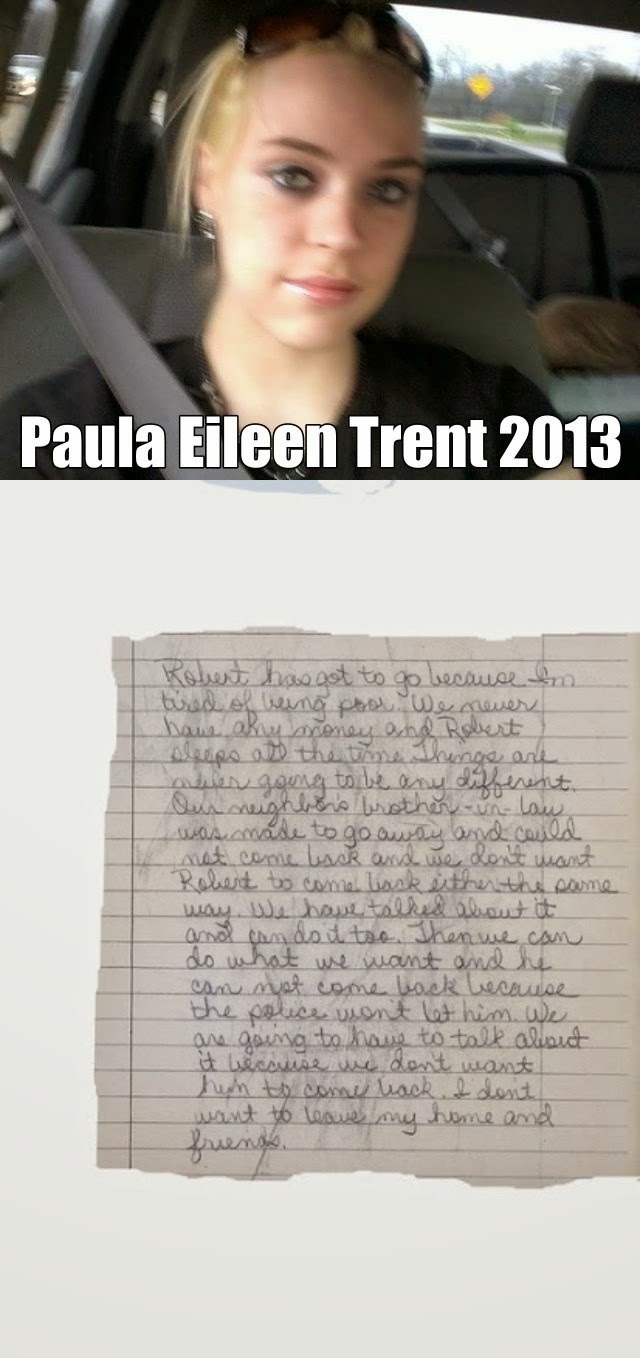 Paula Eileen Trent 2013
Robert has got to go because I'm
tired of being poor. We never
have any money and Robert
sleeps all the time. Things are
never going to be any different.
Our neighbors brother-in-law
was made to go away and could
not come back and we don't want
Robert to come back either the same
way. We have talked about it
and can do it too. Then we can
do what we want and he
can not come back because
the police won't let him. We
are going to have to talk about
it because we don't want
him to come back. I don't
want to leave my home and
friends.